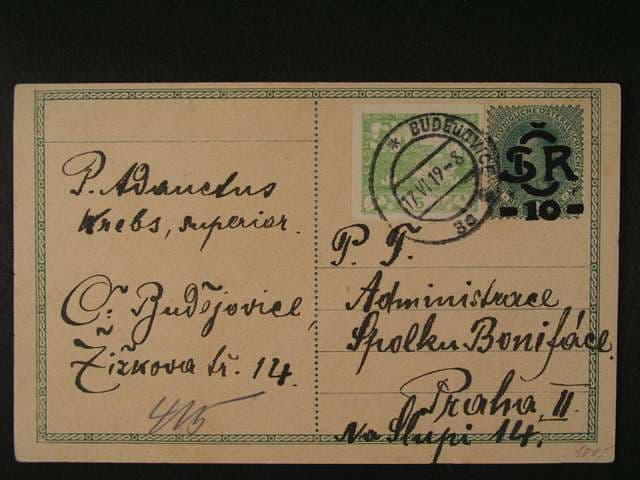 P. Adauctus
Krebs, superior.
Č. Budějovice,
Žižkova tř. 14.
415
* BUDĚJOVICE
17.VI.19-8
3a
ČSR
-10-
P. T.
Administrace
Spolku Bonifáce
Praha, II.
Na Slupi 14.